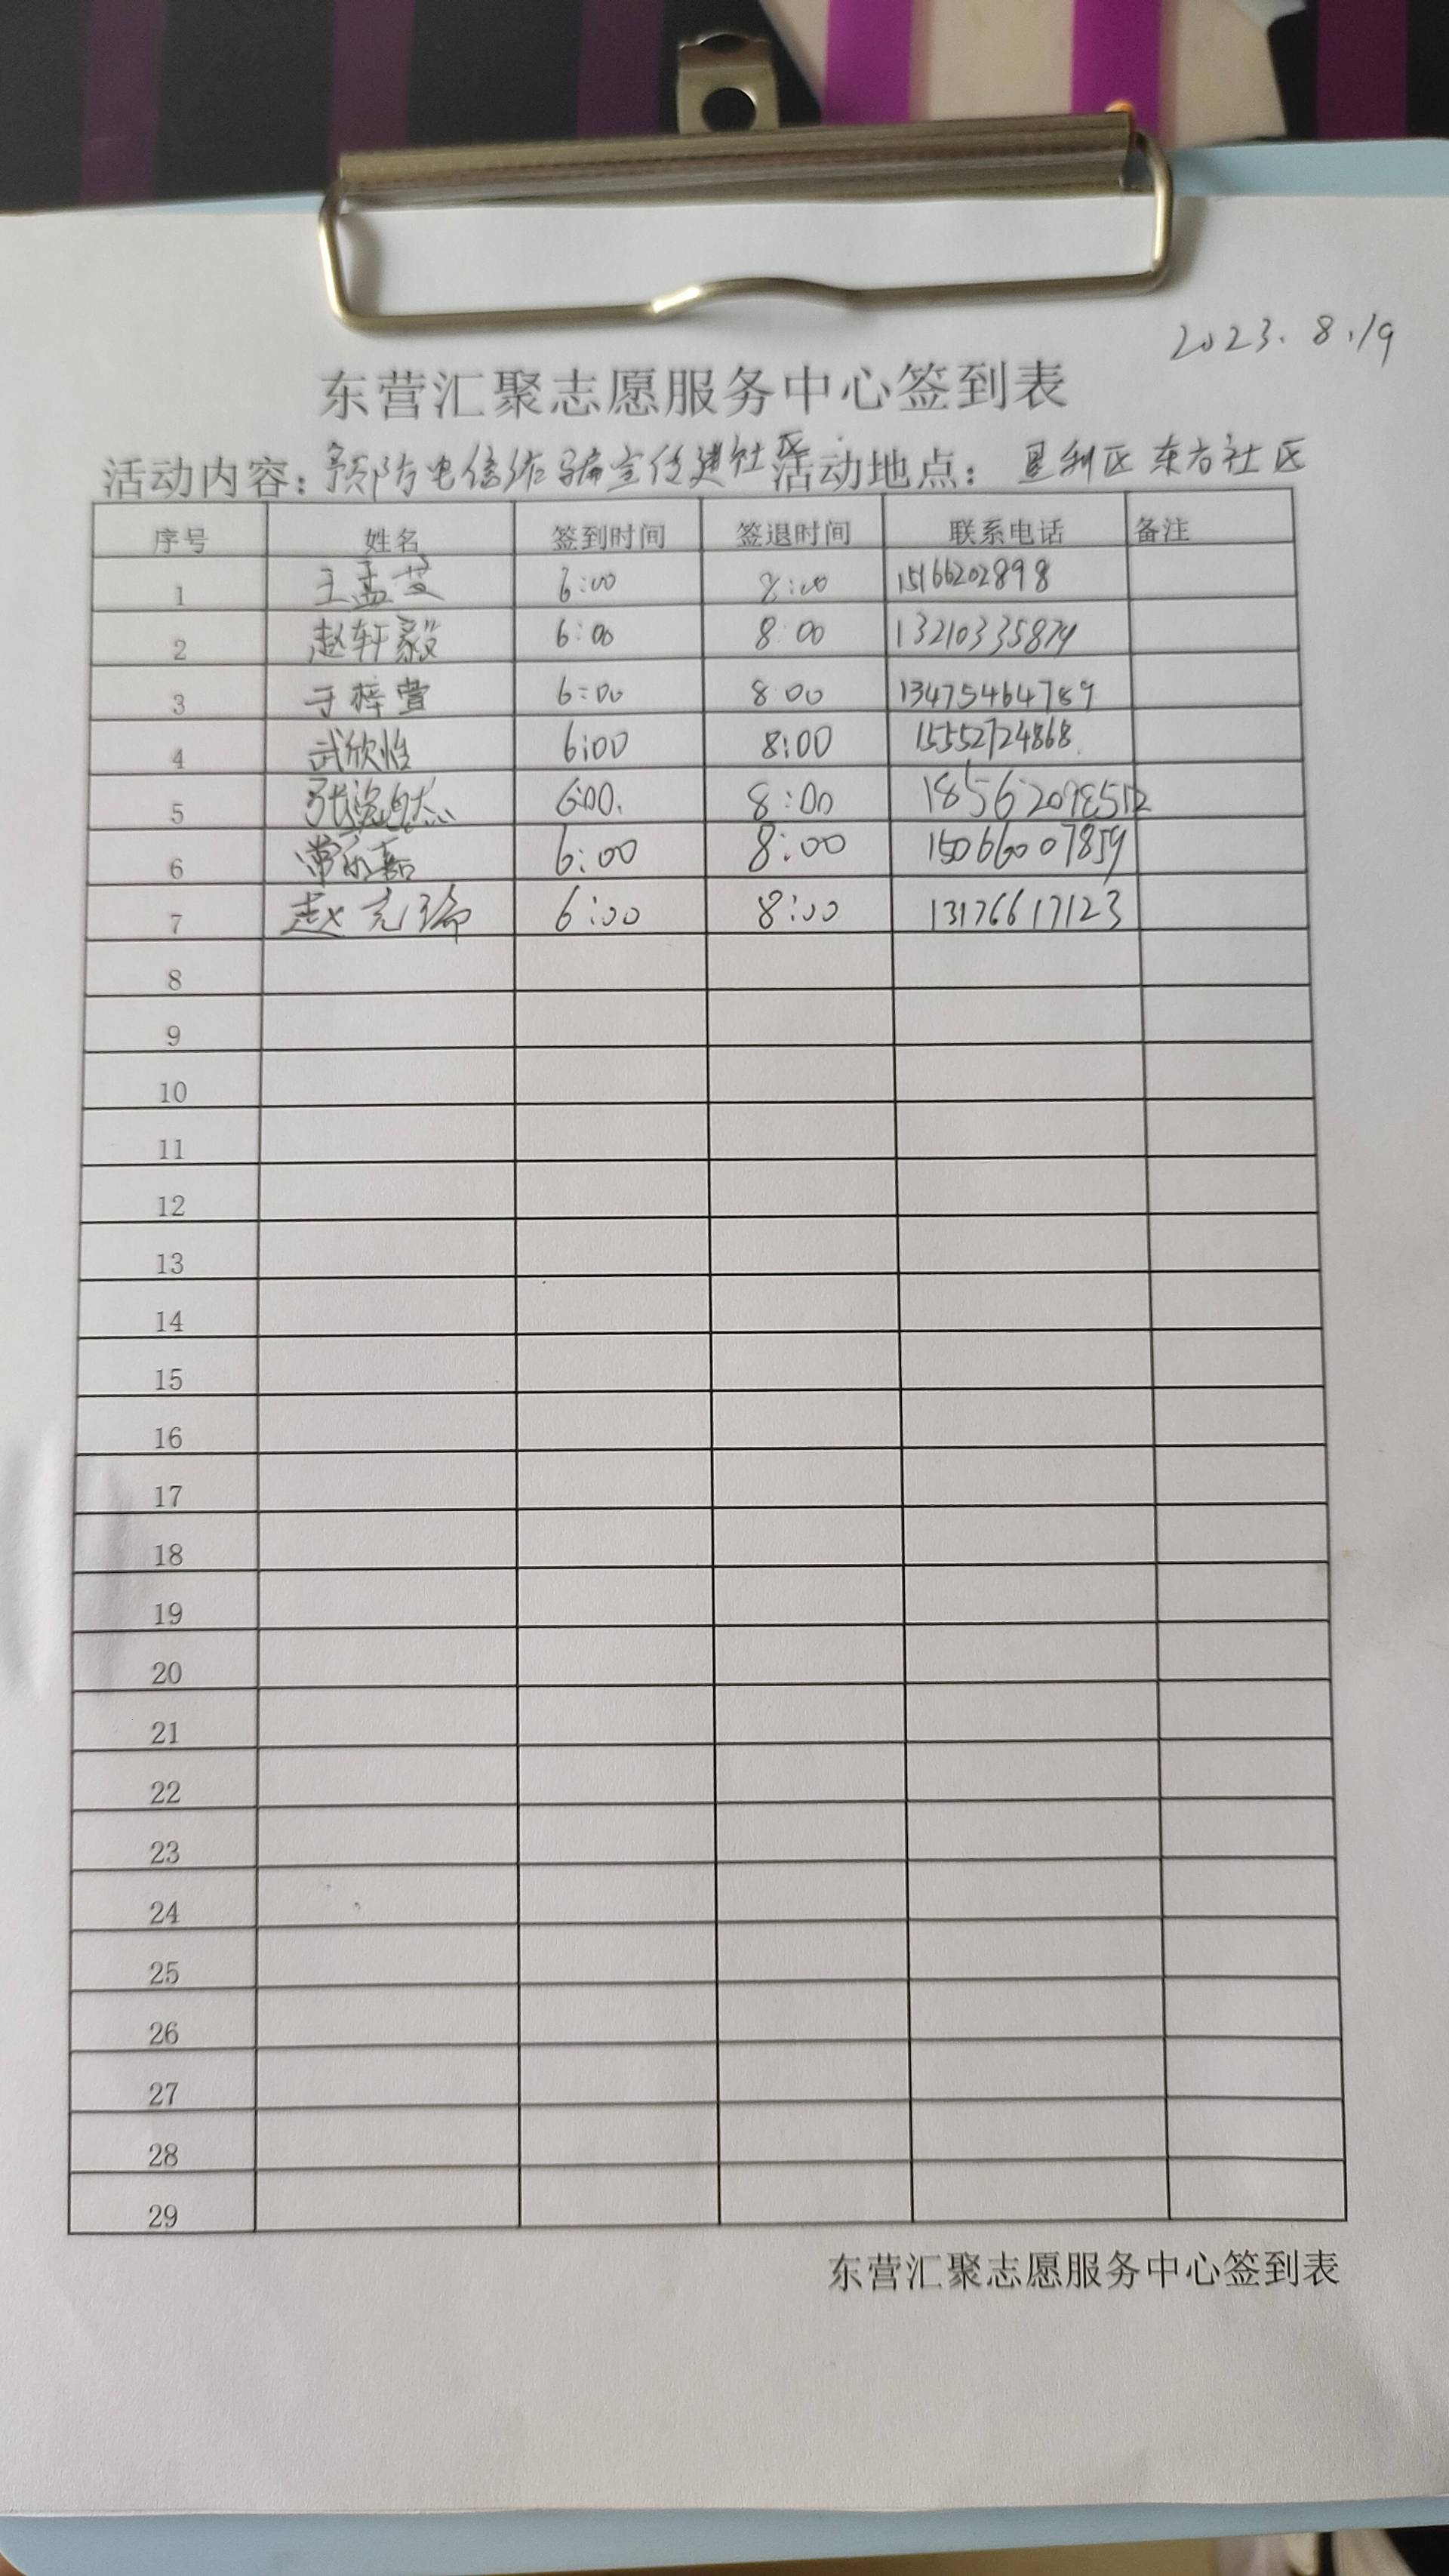 2023.8.19
东营汇聚志愿服务中心签到表
活动内容：预防电信诈骗宣传进社区 活动地点：垦利区东方社区
序号 姓名 签到时间 签退时间 联系电话 备注
1 王孟艾 6:00 8:00 15166202898
2 赵轩毅 6:00 8:00 13210335879
3 于梓萱 6:00 8:00 13475464789
4 武欣怡 6:00 8:00 15552724868
5 6:00 8:00
6 6:00 8:00 15066007859
7 6:00 8:00 13176617123
8
9
10
11
12
13
14
15
16
17
18
19
20
21
22
23
24
25
26
27
28
29
东营汇聚志愿服务中心签到表